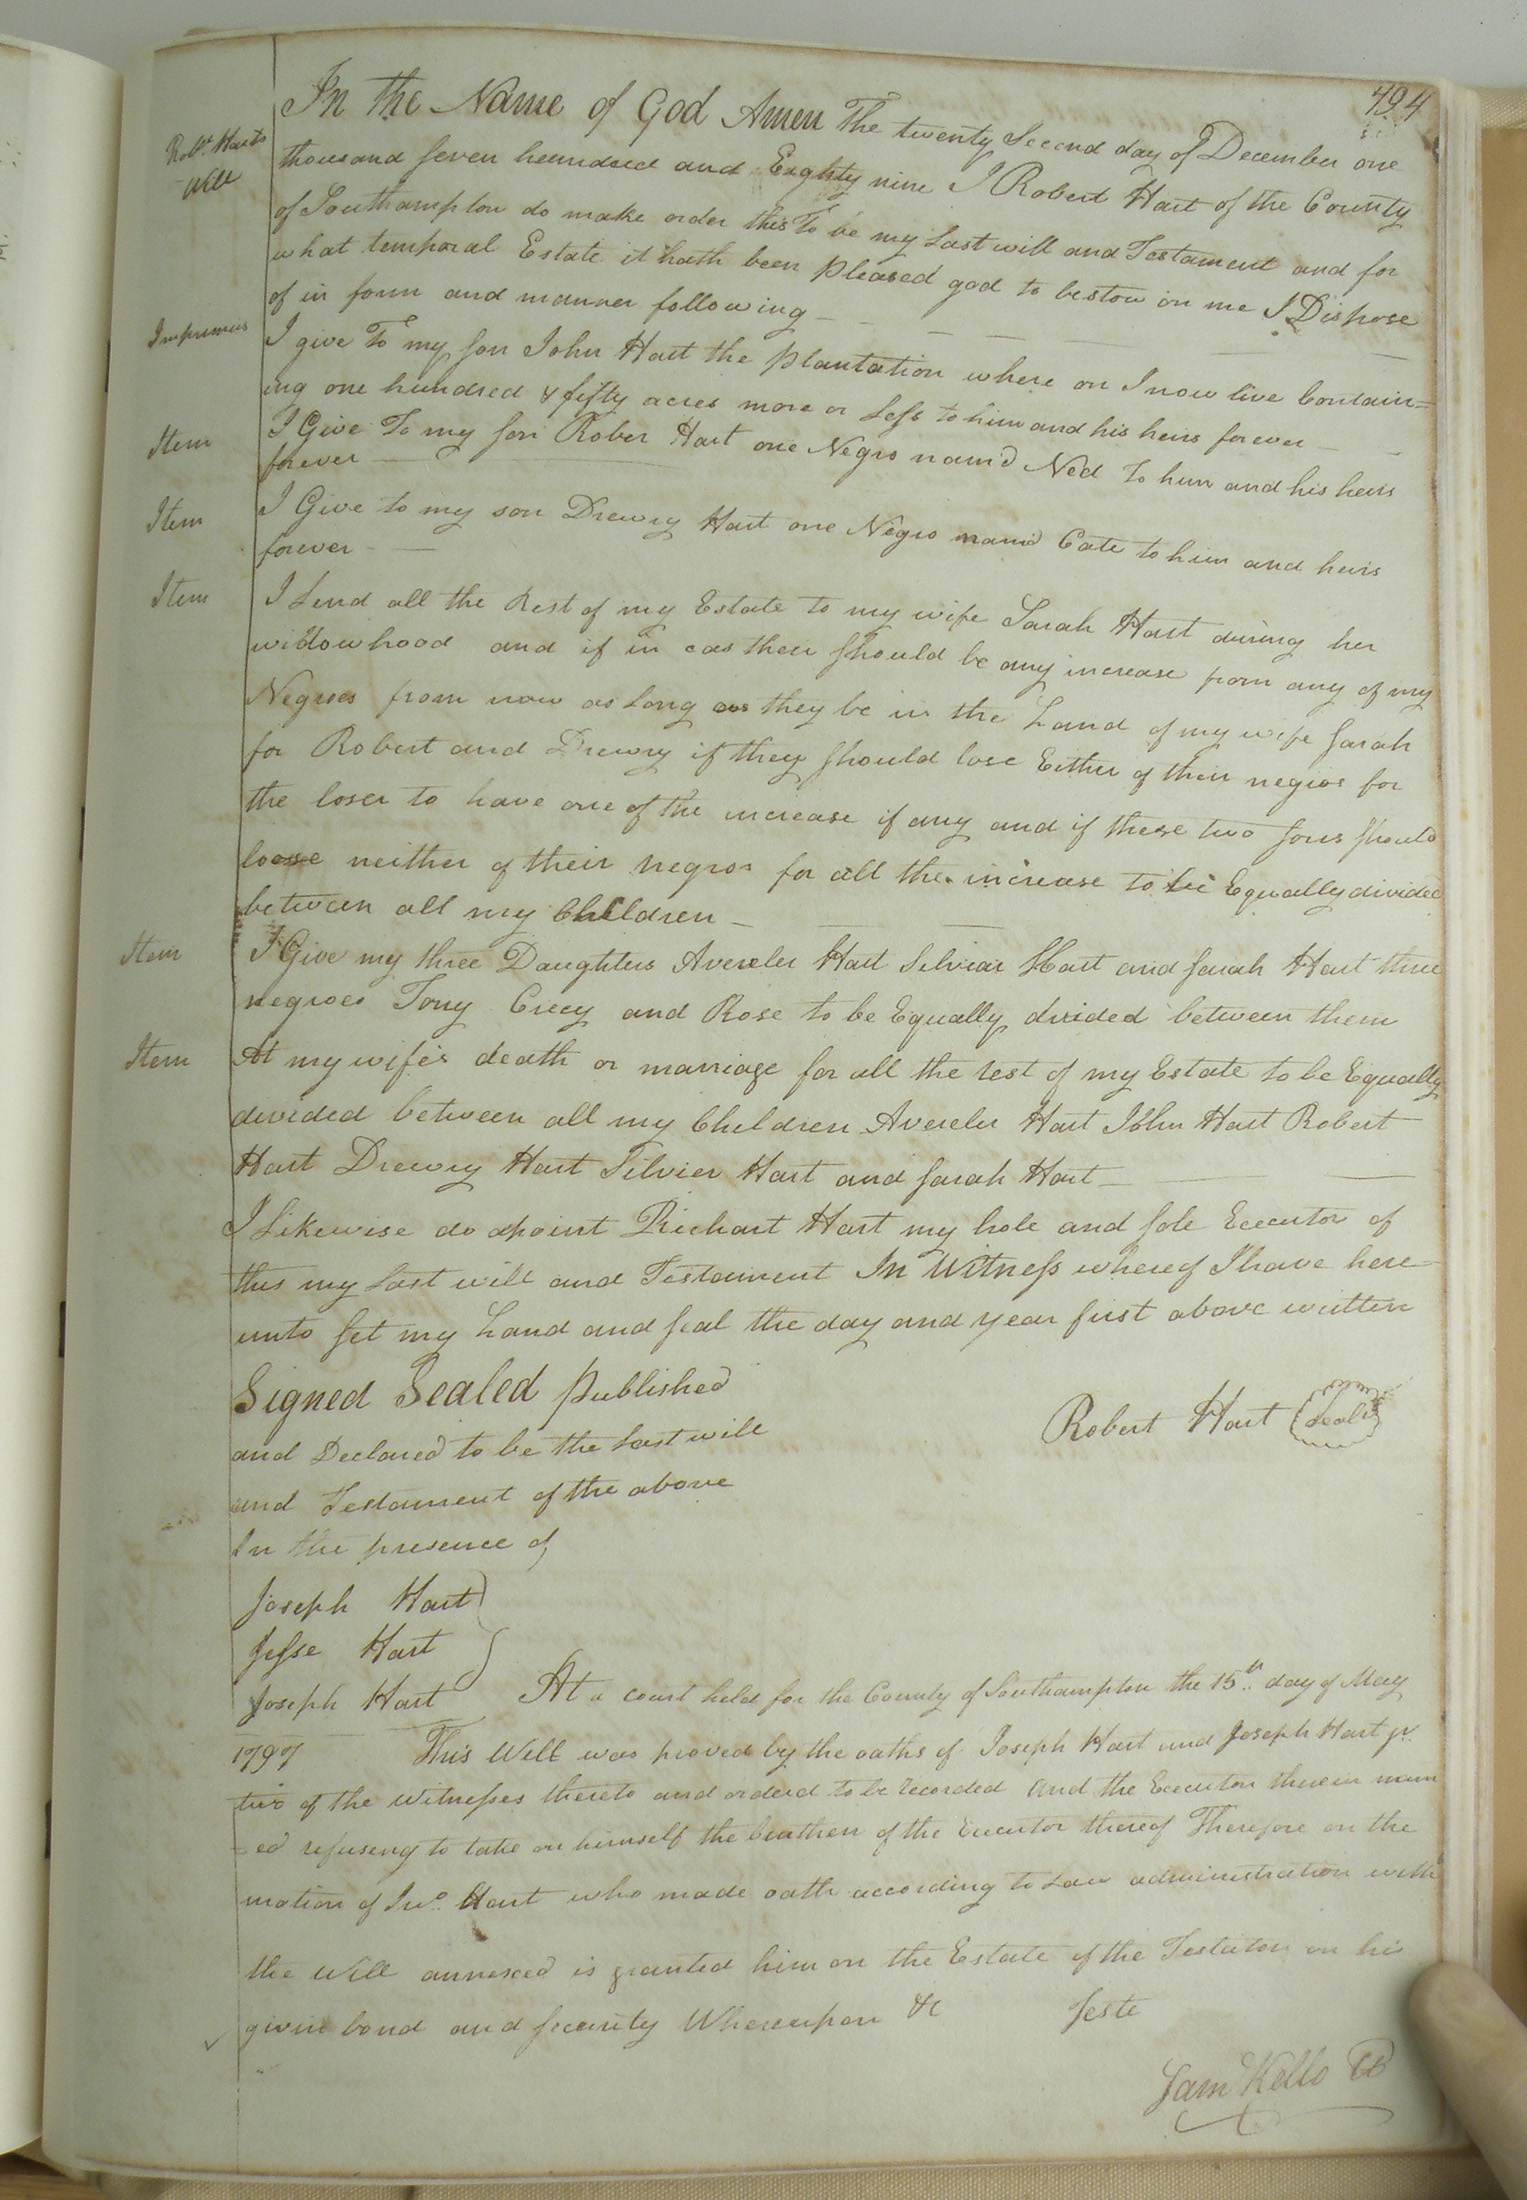 494
Robt. Harts
Will
In the Name of God Amen The twenty Second day of December one
thousand seven hundred and Eighty nine I Robert Hart of the County
of Southampton do make order this To be my Last will and Testament and for
what temporal Estate it hath been pleased god to bestow on me I Dispose
of in form and manner following —
Imprimis I give To my son John Hart the plantation where on I now live Contain=
ing one hundred & fifty acres more or Less to him and his heirs forever —
Item I Give To my son Rober Hart one Negro nam'd Ned To him and his heirs
forever —
Item I Give to my son Drewry Hart one Negro nam'd Cate to him and heirs
forever —
Item I Lend all the Rest of my Estate to my wife Sarah Hart during her
widowhood and if in cas their should be any increase from any of my
Negroes from now as long as they be in the hand of my wife Sarah
for Robert and Drewry if they should lose Either of their negros for
the loser to have one of the increase if any and if these two sons should
loose neither of their negros for all the increase to be Equally divided
between all my Children —
Item I Give my three Daughters Avereler Hart Silviar Hart and Sarah Hart three
negroes Tony Crecy and Rose to be Equally divided between them
Item At my wife's death or marriage for all the rest of my Estate to be Equally
divided between all my Children Avereler Hart John Hart Robert
Hart Drewry Hart Silvier Hart and Sarah Hart —
I Likewise do apoint Richart Hart my hole and sole Executor of
this my Last will and Testament In Witness whereof I have here
unto set my hand and seal the day and year first above written
Signed Sealed published
Robert Hart (Seal)
and Declared to be the Last will
and Testament of the above
In the presence of
Joseph Hart
Jesse Hart
Joseph Hart
At a court held for the County of Southampton the 15th day of May
1797 This Will was proved by the oaths of Joseph Hart and Joseph Hart jr.
two of the Witnesses thereto and orderd to be recorded and the Executor therein nam
=ed refuseng to take on himself the burthen of the Executor thereof Therefore on the
motion of Jno. Hart who made oath according to Law administration with
the Will annexed is granted him on the Estate of the Testator on his
givin bond and security Whereupon &c Teste
Sam Kello CC